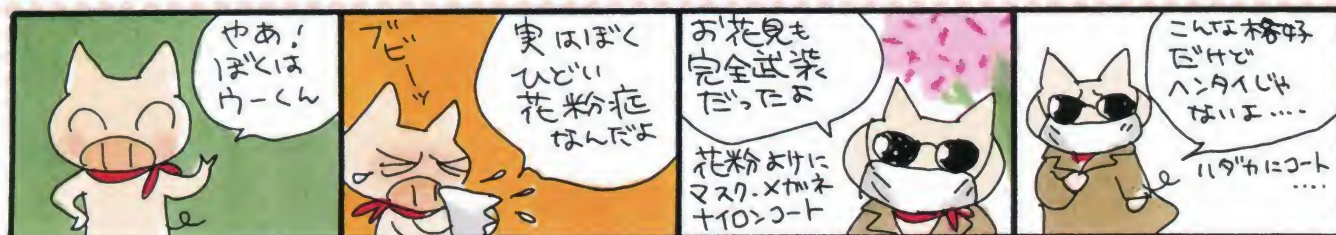 やあ！
ぼくは
ウーくん
ブビーッ
実はぼく
ひどい
花粉症
なんだよ
お花見も
完全武装
だったよ
花粉よけに
マスク・メガネ
ナイロンコート
こんな格好
だけど
ヘンタイじゃ
ないよ‥‥
ハダカにコート
‥‥